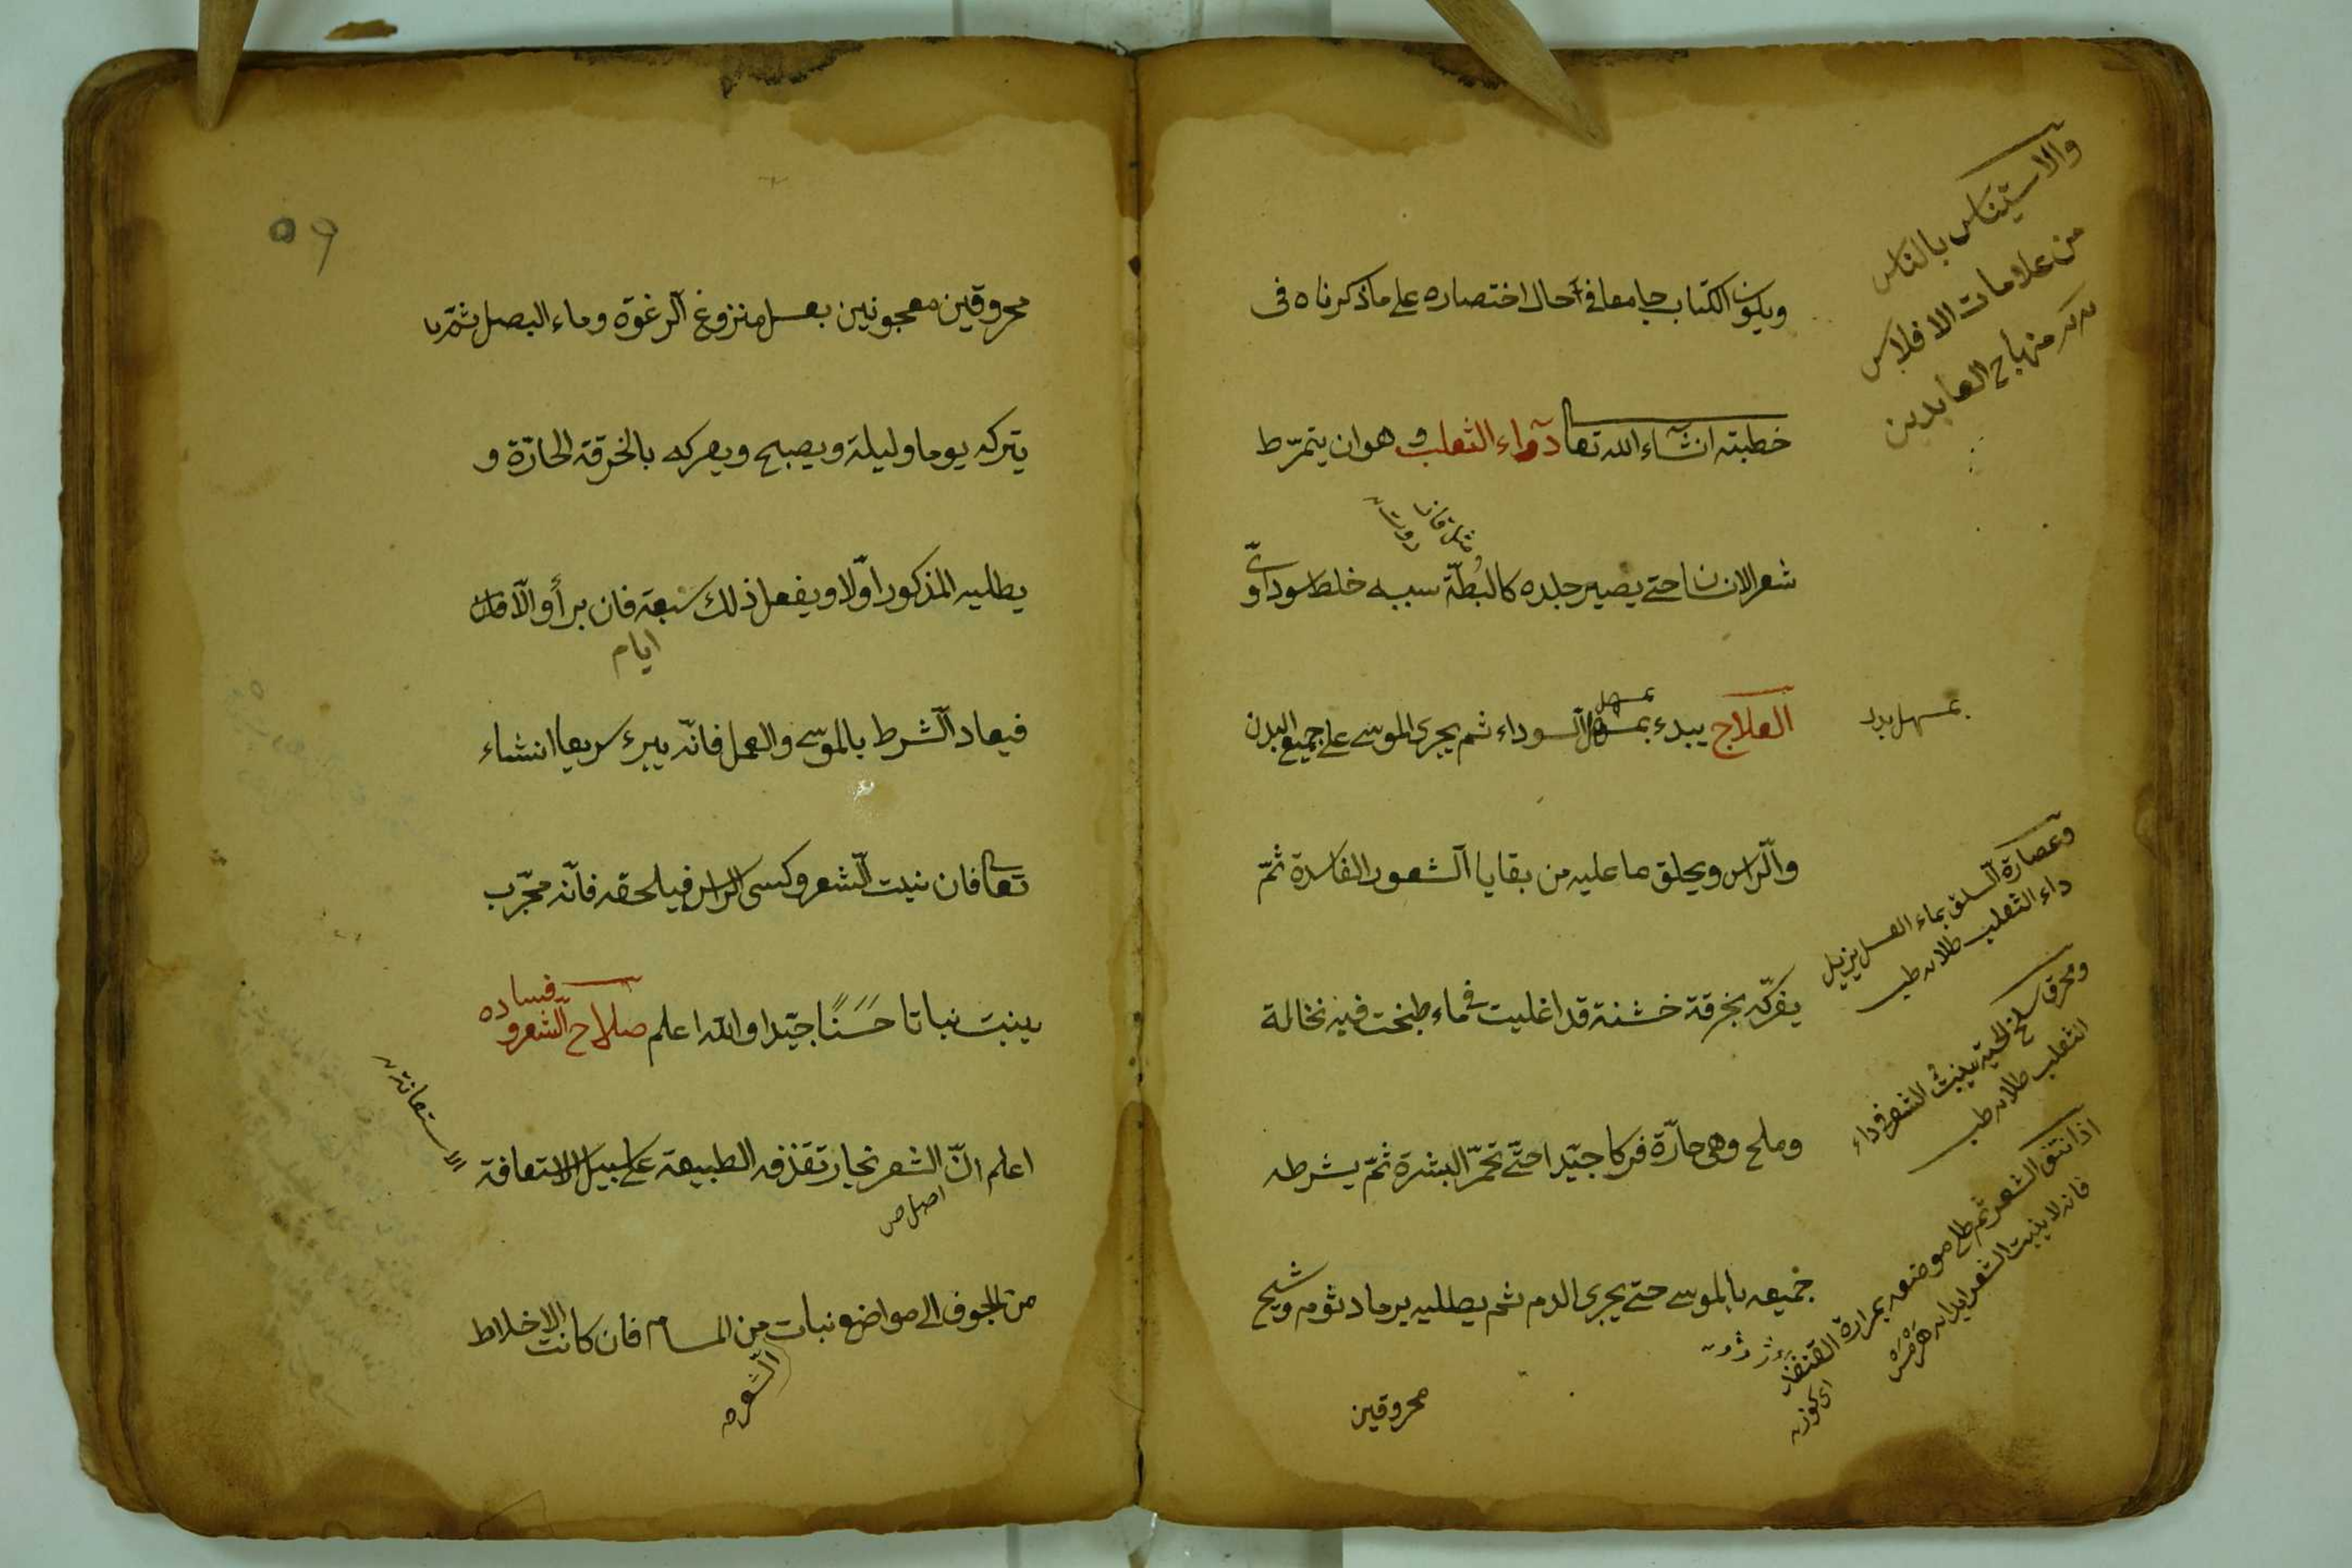 ويكون الكتاب جامعا فى حال اختصاره على ما ذكرناه فى
خطبته انشاء الله تعا دآواء الثعلب وهو ان يتمرّط
شعر الانسان حتى يصير جلده كالبُطّة سببه خلط سوداوىّ
العلاج يبدء بمسهل السوداء ثم يجرى الموسى على جميع البدن
والرّاس ويحلق ما عليه من بقايا الشعور الفاسدة ثمّ
يفركّه بخرقة خشنة قد اغليت فى ماء طبخت فيه نخالة
وملح وهى حارّة فركا جيّدا حتّى تحمرّ البشرة ثمّ يشرطه
جميعه بالموسى حتى يجرى الدم ثم يطليه برماد ثوم وشيح
محروقين
والاستيناس بالناس
من علامات الافلاس
منهاج العابدين
بمسهل
وعصارة السلق بماء العسل يزيل
داء الثعلب طلاء طب
ومحرق سلخ الحية ينبت الشعر فى داء
الثعلب طلاء طب
اذا نتف الشعر ثم طلى موضعه بمرارة القنفذ
فانه لا ينبت الشعر ابدا
٥٩
محروقين معجونين بعسل منزوع الرغوة وماء البصل ثمّ
يتركه يوما وليلة ويصبح ويعركه بالخرقة الحارّة و
يطليه المذكور اوّلا ويفعل ذلك سبعة فان برأ والّا فان
ايام
فيعاد الشرط بالموسى والعمل فانّه يبرء سريعا انشاء
تعا فان نبت الشعر وكسى الراس فيلحقه فانّه مجرّب
ينبت نباتا حَسَنًا جيّدا والله اعلم صلاح الشعر وفساده
اعلم انّ الشعر بخار تقذفه الطبيعة على سبيل الاستعافة
الاستعانة
اصل ص
من الجوف الى مواضع نبات من المسام فان كانت الاخلاط
الشعر